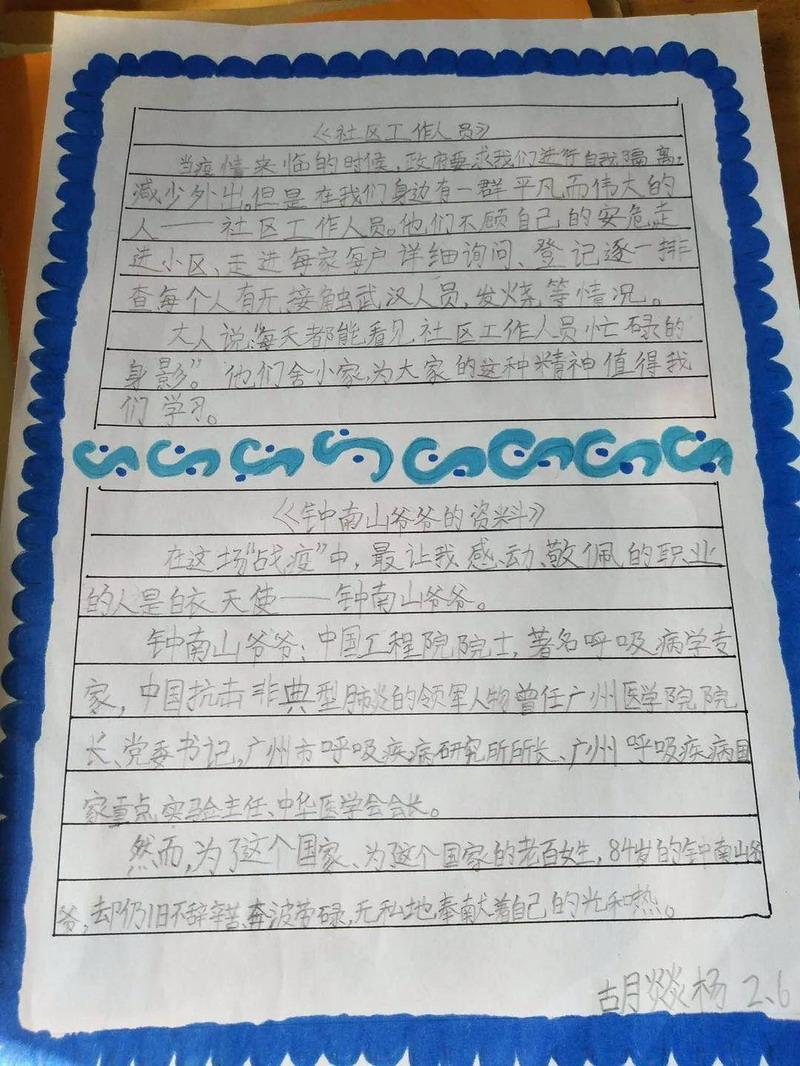 《社区工作人员》
当疫情来临的时候,政府要求我们进行自我隔离,
减少外出。但是在我们身边有一群平凡而伟大的
人——社区工作人员。他们不顾自己的安危走
进小区、走进每家每户详细询问、登记逐一排
查每个人有无接触武汉人员,发烧等情况。
大人说“每天都能看见社区工作人员忙碌的
身影”。他们舍小家,为大家的这种精神值得我
们学习。
《钟南山爷爷的资料》
在这场“战疫”中,最让我感动、敬佩的职业
的人是白衣天使——钟南山爷爷。
钟南山爷爷:中国工程院院士,著名呼吸病学专
家,中国抗击非典型肺炎的领军人物曾任广州医学院院
长、党委书记,广州市呼吸疾病研究所所长、广州呼吸疾病国
家重点实验主任、中华医学会会长。
然而,为了这个国家、为了这个国家的老百姓,84岁的钟南山爷
爷,却仍旧不辞辛苦,奔波劳碌,无私地奉献着自己的光和热。
胡燚杨 2、6